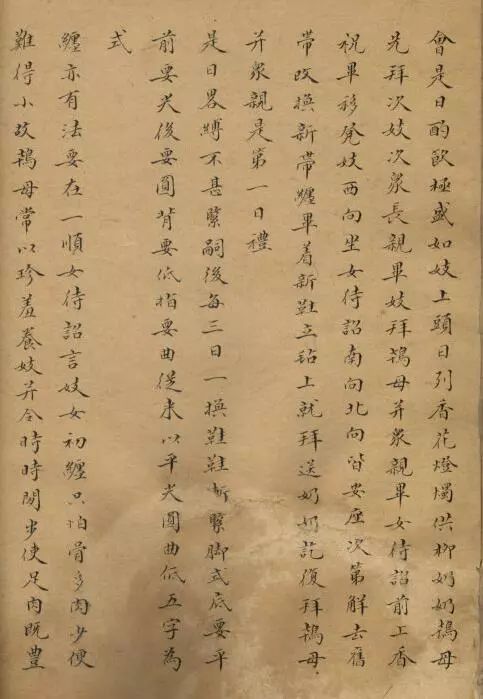 會是日酌飲極盛如妓上頭日列香花燈燭供柳奶奶鴇母
先拜次妓次衆長親畢妓拜鴇母并衆親畢女侍詔前上香
祝畢移凳妓西向坐女侍詔南向北向皆安座次第解去舊
帶改換新帶纏畢着新鞋立毡上就拜送奶奶訖復拜鴇母
并衆親是第一日禮
是日畧縛不甚緊嗣後每三日一換鞋鞋漸緊脚式底要平
前要尖後要圓背要低指要曲從來以平尖圓曲低五字為
式
纏亦有法要在一順女侍詔言妓女初纏只怕骨多肉少便
難得小故鴇母常以珍羞養妓并令時時閒步使足肉既豐